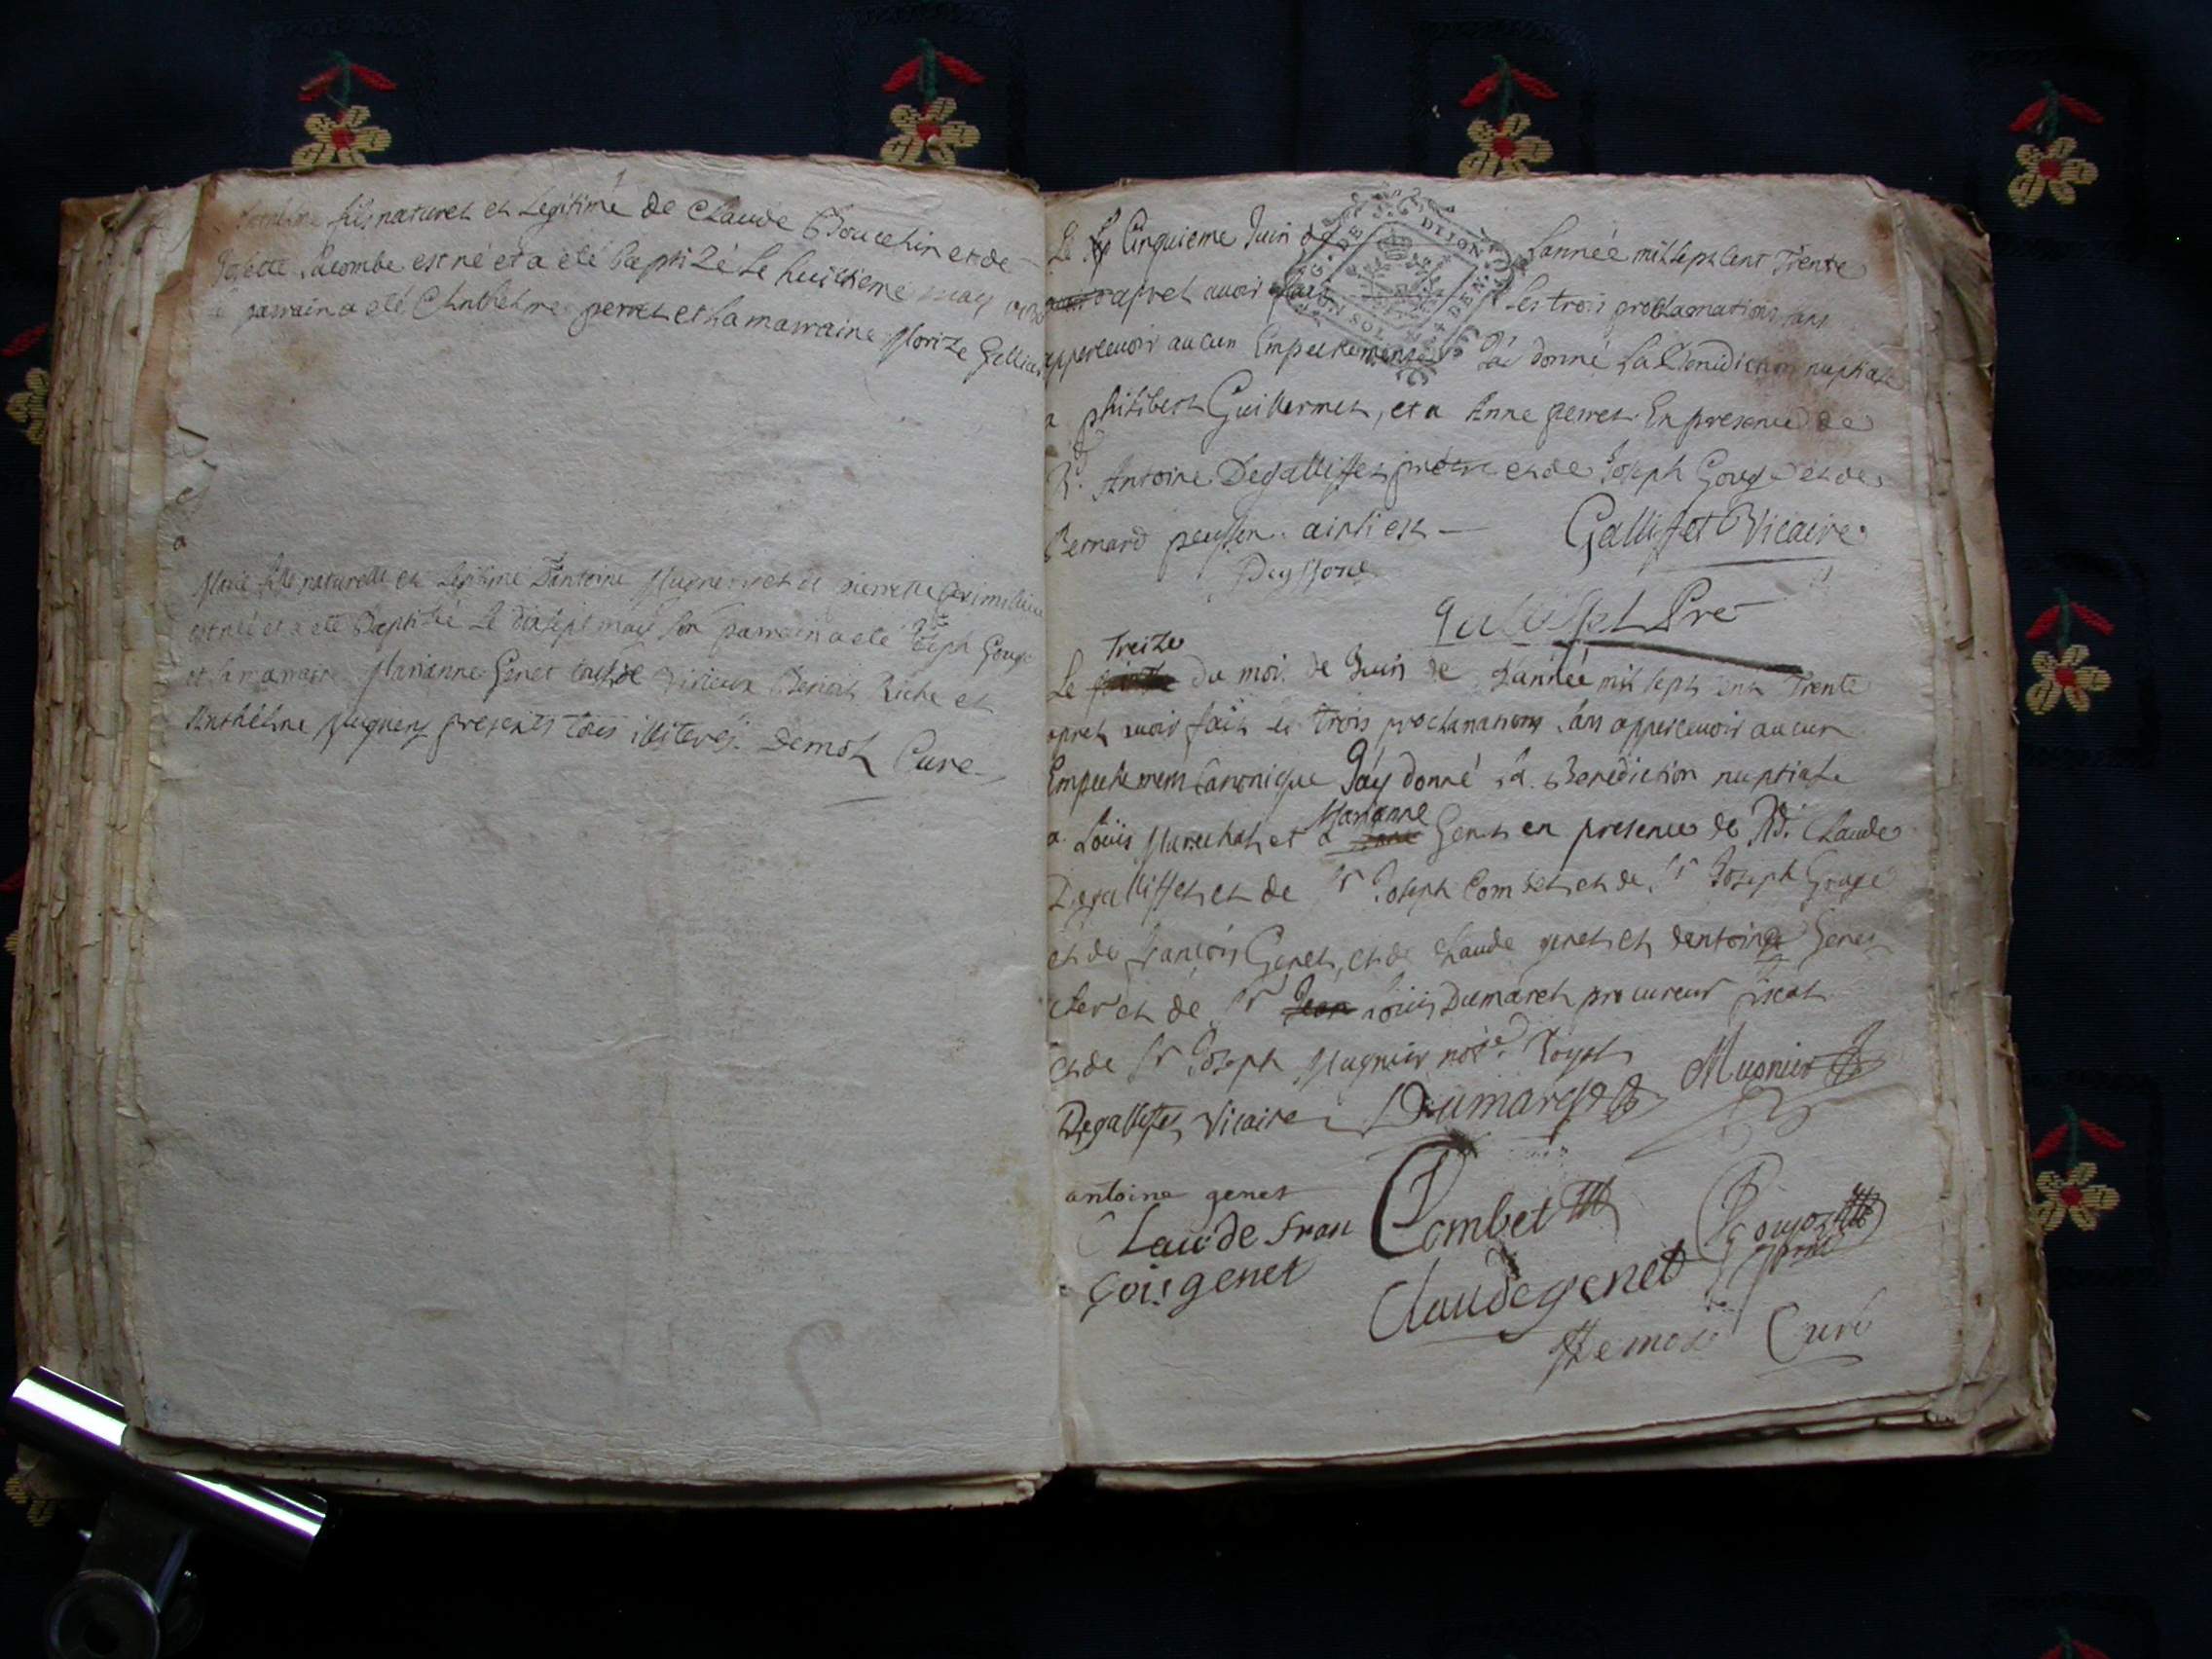 fils naturel et Legitime de Claude Bouchin et de
Lacombe est né et a eté Baptizé Le huictieme may
parrain a eté Anthelme perret et La marraine Morize
Marie fille naturelle et Legitime D'antoine Mugner et de pierrette
est née et a eté Baptizée Le dixsept may son parrain a eté Joseph Gouge
et sa marraine Marianne Genet tous de Virieux Benoit Riche et
Anthelme Mugner presents tous illiterés. Demoz Cure
Le Cinquieme Juin de L'année mil sept cent Trente
apret avoir fait Les trois proclamations sans
appercevoir aucun Empechement J'ai donné La Benediction nuptiale
a philibert Guillermet, et a Anne perret En presence de
Rd. Antoine Degalliffet prêtre et de Joseph Gouge et de
Bernard peysson. ainsi est
Gallifet Vicaire
Peyssone
galifet Pre
Treize
Le du mois de Juin de L'année mil sept cent Trente
apret avoir fait Les trois proclamations sans appercevoir aucun
Empechement Canonique J'ay donné La Benediction nuptiale
Marianne
a Loüis Marechal, et a Genet en presence de Rd. Claude
Degalliffet et de Sr Joseph Combet et de Sr Joseph Gouge
et de françois Genet, et de Claude genet et dantoine Genet
Cler et de Sr Jean Loüis Dumaret procureur fiscal
et de Sr Joseph Mugnier nore. Royal
Mugnier
Degallifet Vicaire Dumarest
antoine genet
Claude fran Combet Goujoz
çois genet
Claude genet
Demoz Curé